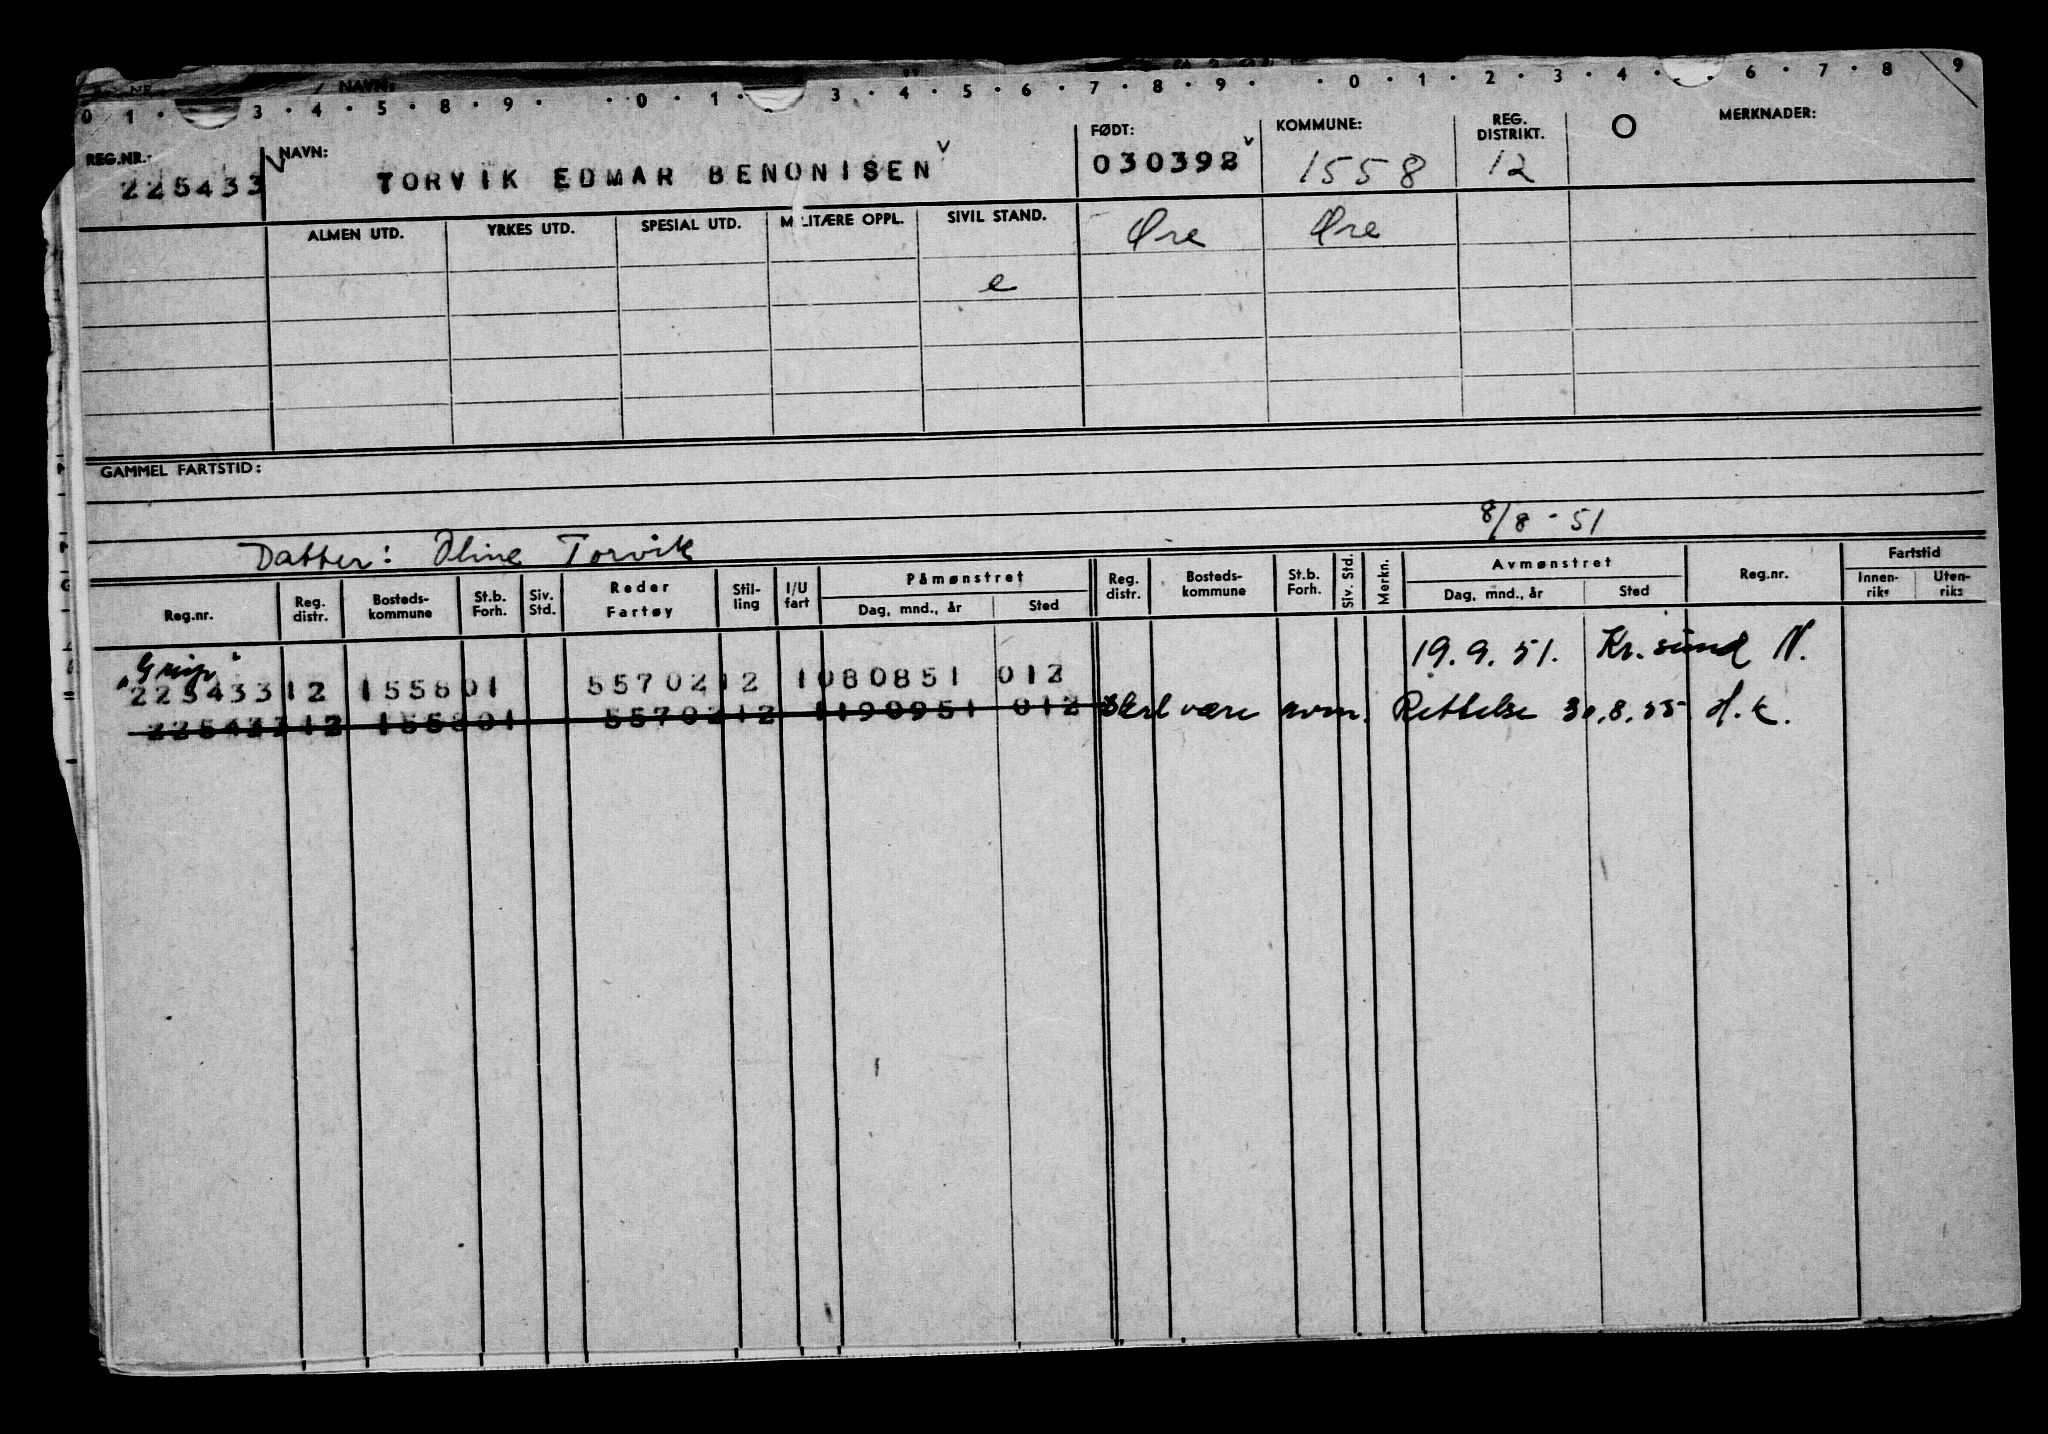 0 1 · 3 · 4 · 5 · 8 · 9 · · 0 · 1 · 3 · 4 · 5 · 6 · 7 · 8 · 9 · · 0 · 1 · 2 · 3 · 4 · 6 · 7 · 8 9
REG.NR. NAVN: FØDT: KOMMUNE: REG. DISTRIKT. O MERKNADER:
225433 TORVIK EDMAR BENONISEN 030392 1558 12
ALMEN UTD. YRKES UTD. SPESIAL UTD. MILITÆRE OPPL. SIVIL STAND. Øre Øre
e
GAMMEL FARTSTID:
8/8 - 51
Datter: Oline Torvik
Reg.nr. Reg. distr. Bosteds- kommune St.b. Forh. Siv. Std. Reder Fartøy Stil- ling I/U fart Påmønstret Dag, mnd., år Sted Reg. distr. Bosteds- kommune St.b. Forh. Siv. Std. Merkn. Avmønstret Dag, mnd., år Sted Reg.nr. Fartstid Innen- riks Uten- riks
"Grip" 19.9.51. Kr.sund N.
225433 12 1558 01 5570212 1 080851 012
225433 12 1558 01 5570212 1 190951 012 Skal være avm. Rettelse 30.8.55